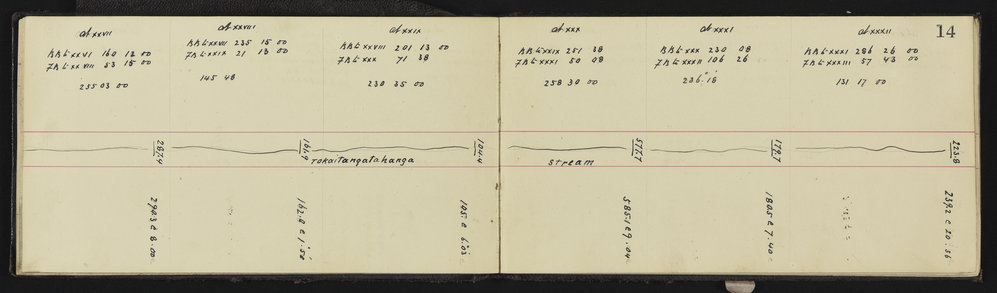 14
at xxvii
RR to xxvi 160 13 00
FR to xxviii 53 15 00
255 03 00
at xxviii
RR to xxvii 235 15 00
FR to xxix 21 13 00
145 48
at xxix
RR to xxviii 201 13 00
FR to xxx 71 38
230 35 00
at xxx
RR to xxix 251 38
FR to xxxi 50 08
258 30 00
at xxxi
RR to xxx 230 08
FR to xxxii 106 26
236 18
at xxxii
RR to xxxi 286 26 00
FR to xxxiii 57 43 00
131 17 00
287.4
161.9
Tokaitangatahanga
104.4
Stream
577.7
179.7
223.8
290.3 @ 8.00
162.0 @ 1.50
105.0 @ 6.03
585.1 @ 9.04
180.5 @ 7.40
239.2 @ 20.56